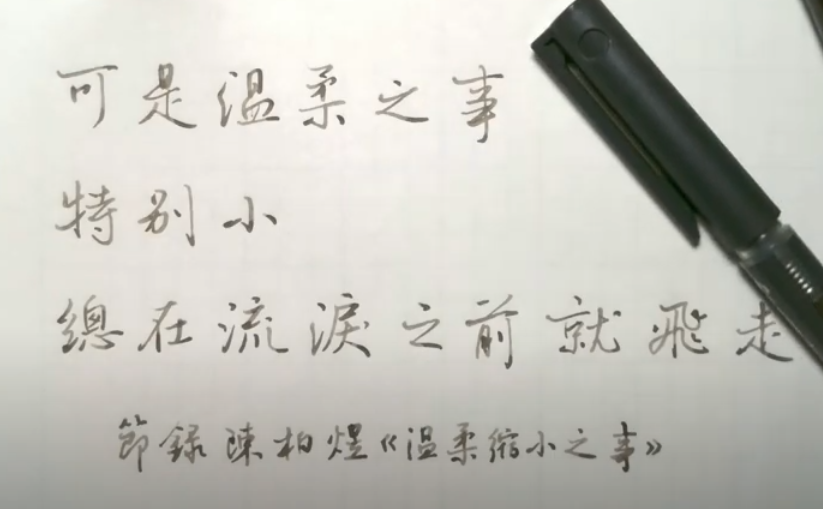 可是溫柔之事
特別小
總在流淚之前就飛走
節錄陳柏煜《溫柔縮小之事》